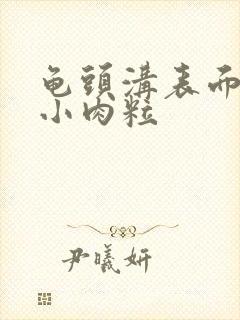 龟頭溝表而
小肉粒
尹曦妍